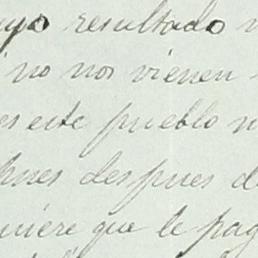 uyo resultado
no nos vienen
este pueblo
pues despues de
quiere que le pag